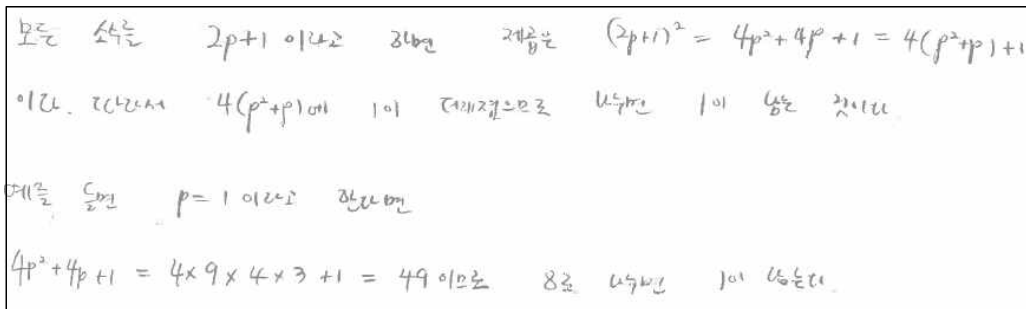 모든 솟수를 2p+1 이라고 하면 제곱은 (2p+1)² = 4p²+4p+1 = 4(p²+p)+1
이다. 따라서 4(p²+p)에 1이 더해졌으므로 나누면 1이 남는 것이다.
예를 들면 p=1 이라고 한다면
4p²+4p+1 = 4×9×4×3+1 = 49 이므로 8로 나누면 1이 남는다.